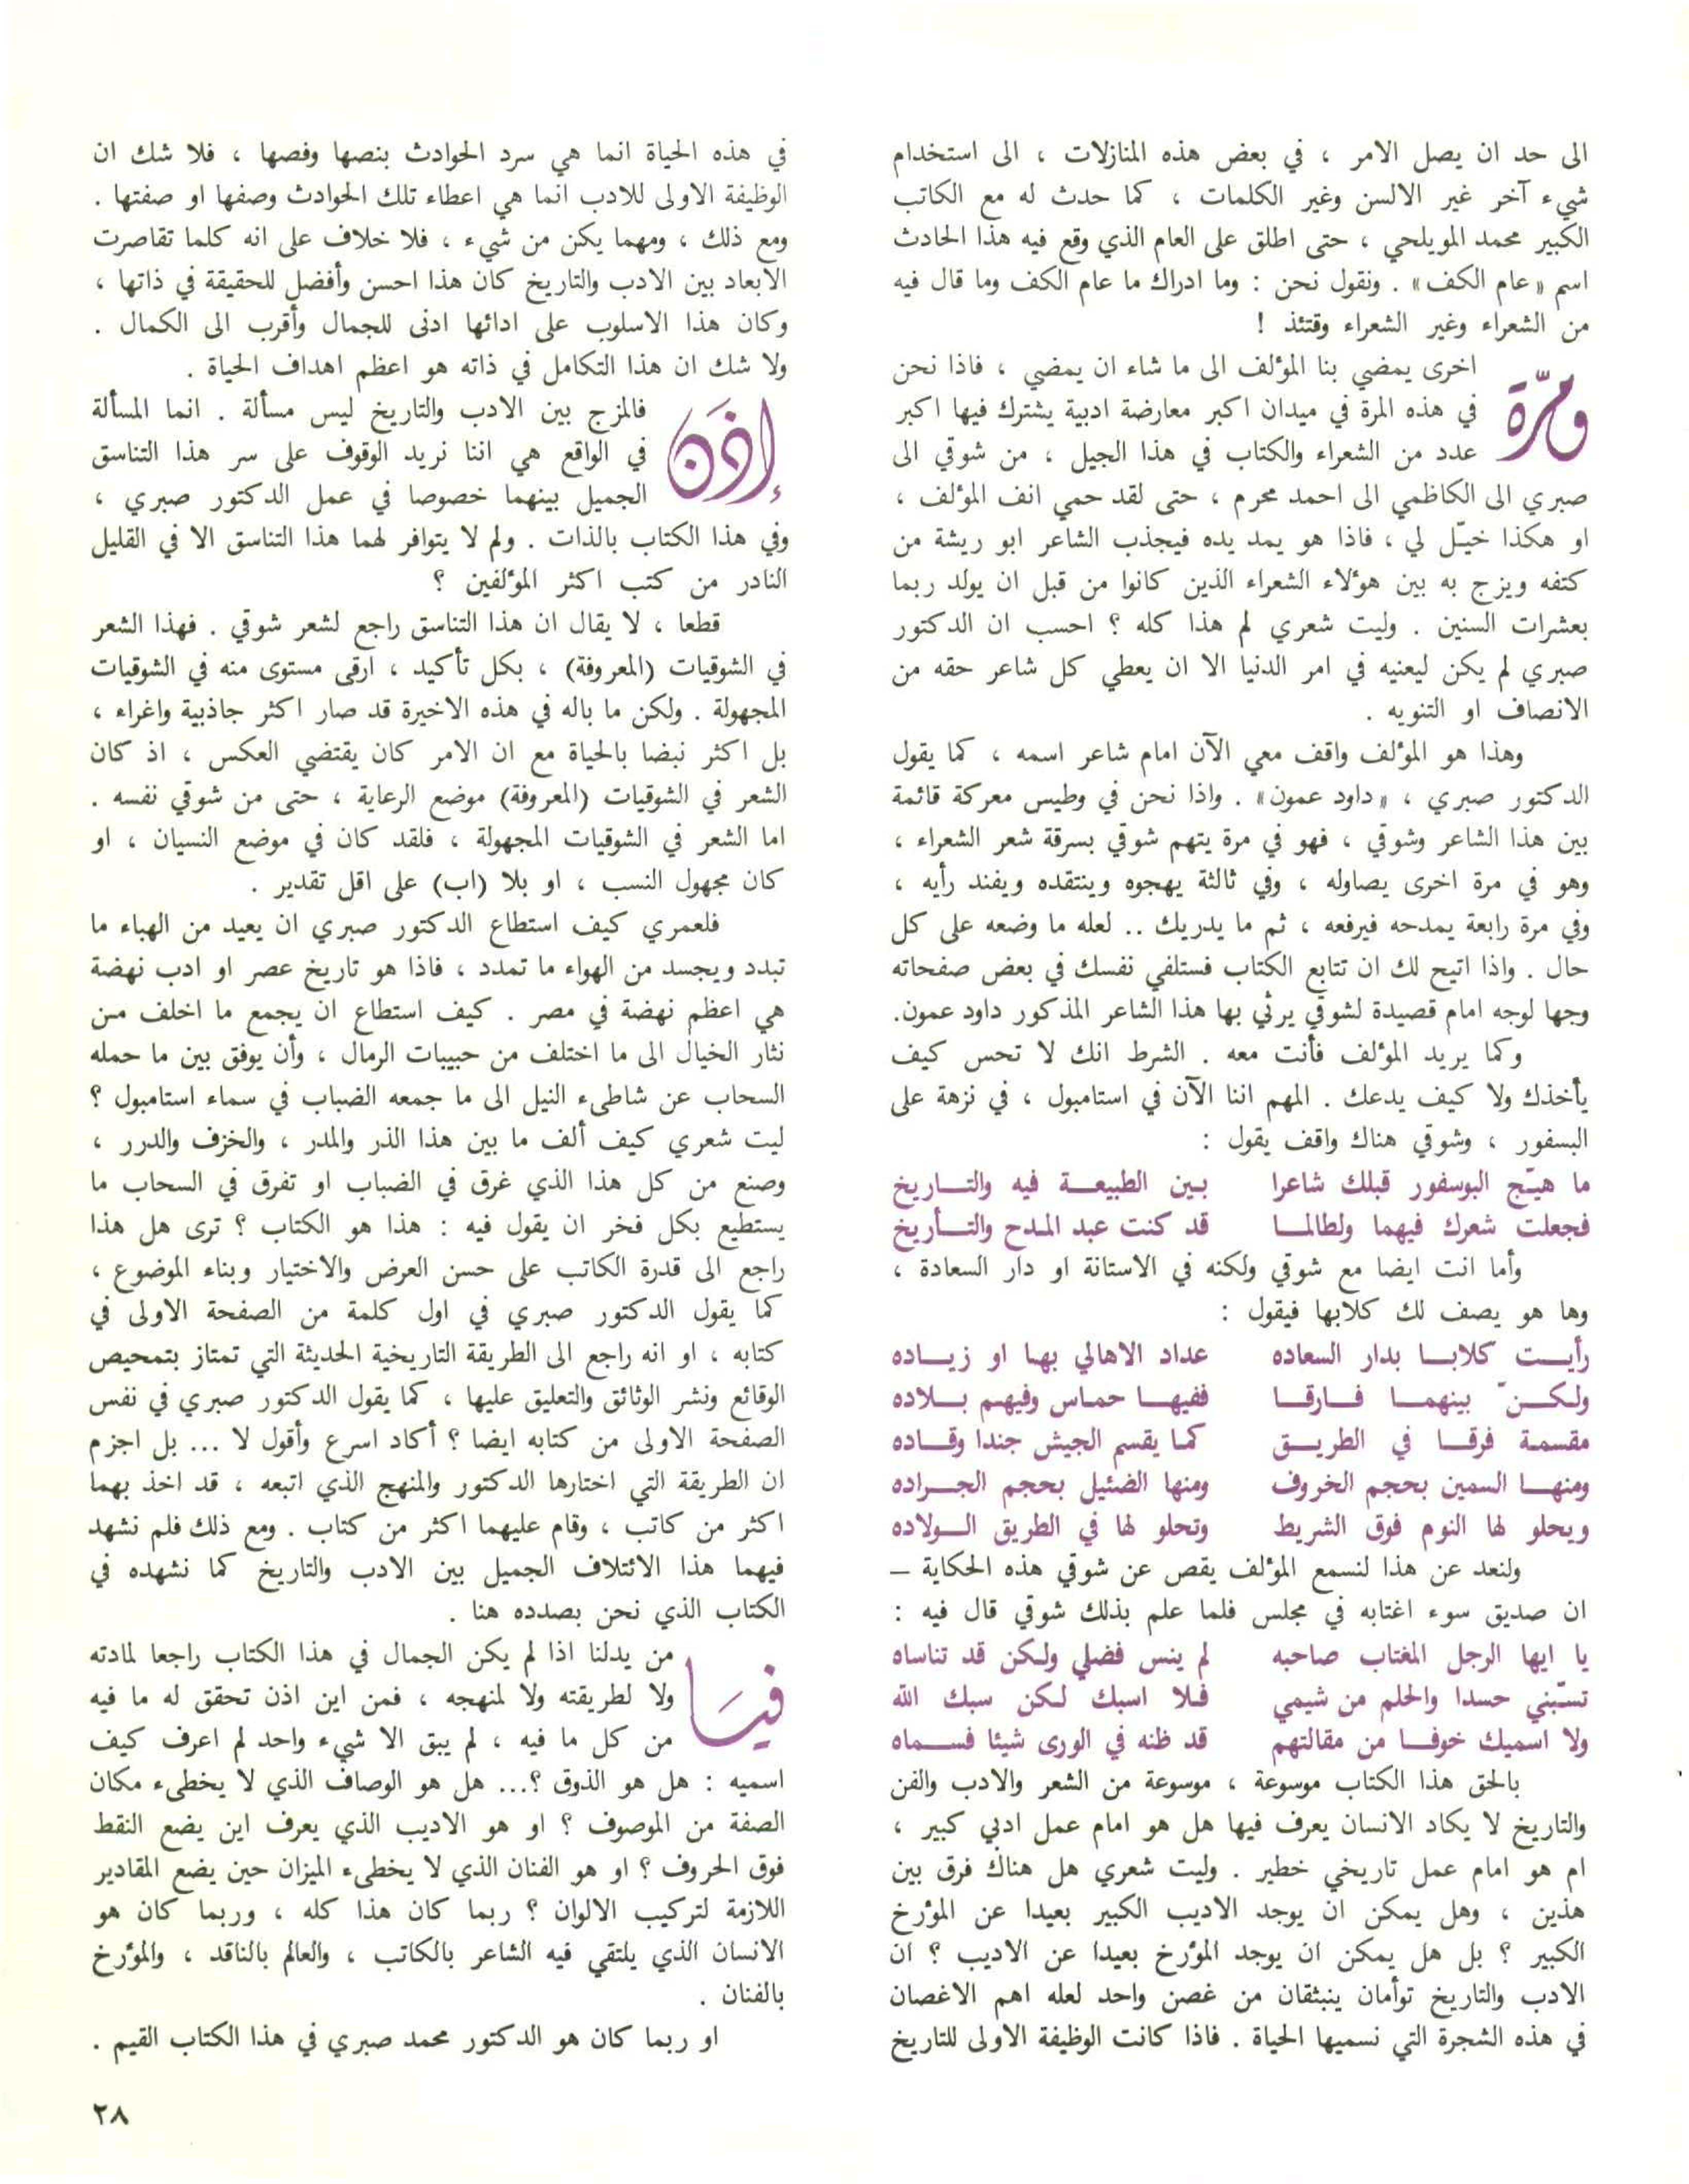 الى حد ان يصل الامر ، في بعض هذه المنازلات ، الى استخدام
شيء آخر غير الالسن وغير الكلمات ، كما حدث له مع الكاتب
الكبير محمد المويلحي ، حتى اطلق على العام الذي وقع فيه هذا الحادث
اسم «عام الكف» . ونقول نحن : وما ادراك ما عام الكف وما قال فيه
من الشعراء وغير الشعراء وقتئذ !
ومرّة اخرى يمضي بنا المؤلف الى ما شاء ان يمضي ، فاذا نحن
في هذه المرة في ميدان اكبر معارضة ادبية يشترك فيها اكبر
عدد من الشعراء والكتاب في هذا الجيل ، من شوقي الى
صبري الى الكاظمي الى احمد محرم ، حتى لقد حمي انف المؤلف ،
او هكذا خيّل لي ، فاذا هو يمد يده فيجذب الشاعر ابو ريشة من
كتفه ويزج به بين هؤلاء الشعراء الذين كانوا من قبل ان يولد ربما
بعشرات السنين . وليت شعري لم هذا كله ؟ احسب ان الدكتور
صبري لم يكن ليعنيه في امر الدنيا الا ان يعطي كل شاعر حقه من
الانصاف او التنويه .
وهذا هو المؤلف واقف معي الآن امام شاعر اسمه ، كما يقول
الدكتور صبري ، «داود عمون» . واذا نحن في وطيس معركة قائمة
بين هذا الشاعر وشوقي ، فهو في مرة يتهم شوقي بسرقة شعر الشعراء ،
وهو في مرة اخرى يصاوله ، وفي ثالثة يهجوه وينتقده ويفند رأيه ،
وفي مرة رابعة يمدحه فيرفعه ، ثم ما يدريك .. لعله ما وضعه على كل
حال . واذا اتيح لك ان تتابع الكتاب فستلفي نفسك في بعض صفحاته
وجها لوجه امام قصيدة لشوقي يرثي بها هذا الشاعر المذكور داود عمون.
وكما يريد المؤلف فأنت معه . الشرط انك لا تحس كيف
يأخذك ولا كيف يدعك . المهم اننا الآن في استامبول ، في نزهة على
البسفور ، وشوقي هناك واقف يقول :
ما هيّج البوسفور قبلك شاعرا بين الطبيعة فيه والتاريخ
فجعلت شعرك فيهما ولطالما قد كنت عبد المدح والتأريخ
وأما انت ايضا مع شوقي ولكنه في الاستانة او دار السعادة ،
وها هو يصف لك كلابها فيقول :
رأيت كلابا بدار السعاده عداد الاهالي بها او زياده
ولكنّ بينهما فارقا ففيها حماس وفيهم بلاده
مقسمة فرقا في الطريق كما يقسم الجيش جندا وقاده
ومنها السمين بحجم الخروف ومنها الضئيل بحجم الجراده
ويحلو لها النوم فوق الشريط وتحلو لها في الطريق الولاده
ولنعد عن هذا لنسمع المؤلف يقص عن شوقي هذه الحكاية –
ان صديق سوء اغتابه في مجلس فلما علم بذلك شوقي قال فيه :
يا ايها الرجل المغتاب صاحبه لم ينس فضلي ولكن قد تناساه
تسبّني حسدا والحلم من شيمي فلا اسبك لكن سبك الله
ولا اسميك خوفا من مقالتهم قد ظنه في الورى شيئا فسماه
بالحق هذا الكتاب موسوعة ، موسوعة من الشعر والادب والفن
والتاريخ لا يكاد الانسان يعرف فيها هل هو امام عمل ادبي كبير ،
ام هو امام عمل تاريخي خطير . وليت شعري هل هناك فرق بين
هذين ، وهل يمكن ان يوجد الاديب الكبير بعيدا عن المؤرخ
الكبير ؟ بل هل يمكن ان يوجد المؤرخ بعيدا عن الاديب ؟ ان
الادب والتاريخ توأمان ينبثقان من غصن واحد لعله اهم الاغصان
في هذه الشجرة التي نسميها الحياة . فاذا كانت الوظيفة الاولى للتاريخ
في هذه الحياة انما هي سرد الحوادث بنصها وفصها ، فلا شك ان
الوظيفة الاولى للادب انما هي اعطاء تلك الحوادث وصفها او صفتها .
ومع ذلك ، ومهما يكن من شيء ، فلا خلاف على انه كلما تقاصرت
الابعاد بين الادب والتاريخ كان هذا احسن وأفضل للحقيقة في ذاتها ،
وكان هذا الاسلوب على ادائها ادنى للجمال وأقرب الى الكمال .
ولا شك ان هذا التكامل في ذاته هو اعظم اهداف الحياة .
إذن فالمزج بين الادب والتاريخ ليس مسألة . انما المسألة
في الواقع هي اننا نريد الوقوف على سر هذا التناسق
الجميل بينهما خصوصا في عمل الدكتور صبري ،
وفي هذا الكتاب بالذات . ولم لا يتوافر لهما هذا التناسق الا في القليل
النادر من كتب اكثر المؤلفين ؟
قطعا ، لا يقال ان هذا التناسق راجع لشعر شوقي . فهذا الشعر
في الشوقيات (المعروفة) ، بكل تأكيد ، ارقى مستوى منه في الشوقيات
المجهولة . ولكن ما باله في هذه الاخيرة قد صار اكثر جاذبية واغراء ،
بل اكثر نبضا بالحياة مع ان الامر كان يقتضي العكس ، اذ كان
الشعر في الشوقيات (المعروفة) موضع الرعاية ، حتى من شوقي نفسه .
اما الشعر في الشوقيات المجهولة ، فلقد كان في موضع النسيان ، او
كان مجهول النسب ، او بلا (اب) على اقل تقدير .
فلعمري كيف استطاع الدكتور صبري ان يعيد من الهباء ما
تبدد ويجسد من الهواء ما تمدد ، فاذا هو تاريخ عصر او ادب نهضة
هي اعظم نهضة في مصر . كيف استطاع ان يجمع ما اخلف من
نثار الخيال الى ما اختلف من حبيبات الرمال ، وأن يوفق بين ما حمله
السحاب عن شاطىء النيل الى ما جمعه الضباب في سماء استامبول ؟
ليت شعري كيف ألف ما بين هذا الذر والمدر ، والخزف والدرر ،
وصنع من كل هذا الذي غرق في الضباب او تفرق في السحاب ما
يستطيع بكل فخر ان يقول فيه : هذا هو الكتاب ؟ ترى هل هذا
راجع الى قدرة الكاتب على حسن العرض والاختيار وبناء الموضوع ،
كما يقول الدكتور صبري في اول كلمة من الصفحة الاولى في
كتابه ، او انه راجع الى الطريقة التاريخية الحديثة التي تمتاز بتمحيص
الوقائع ونشر الوثائق والتعليق عليها ، كما يقول الدكتور صبري في نفس
الصفحة الاولى من كتابه ايضا ؟ أكاد اسرع وأقول لا ... بل اجزم
ان الطريقة التي اختارها الدكتور والمنهج الذي اتبعه ، قد اخذ بهما
اكثر من كاتب ، وقام عليهما اكثر من كتاب . ومع ذلك فلم نشهد
فيهما هذا الائتلاف الجميل بين الادب والتاريخ كما نشهده في
الكتاب الذي نحن بصدده هنا .
فيا من يدلنا اذا لم يكن الجمال في هذا الكتاب راجعا لمادته
ولا لطريقته ولا لمنهجه ، فمن اين اذن تحقق له ما فيه
من كل ما فيه ، لم يبق الا شيء واحد لم اعرف كيف
اسميه : هل هو الذوق ؟... هل هو الوصاف الذي لا يخطىء مكان
الصفة من الموصوف ؟ او هو الاديب الذي يعرف اين يضع النقط
فوق الحروف ؟ او هو الفنان الذي لا يخطىء الميزان حين يضع المقادير
اللازمة لتركيب الالوان ؟ ربما كان هذا كله ، وربما كان هو
الانسان الذي يلتقي فيه الشاعر بالكاتب ، والعالم بالناقد ، والمؤرخ
بالفنان .
او ربما كان هو الدكتور محمد صبري في هذا الكتاب القيم .
٢٨